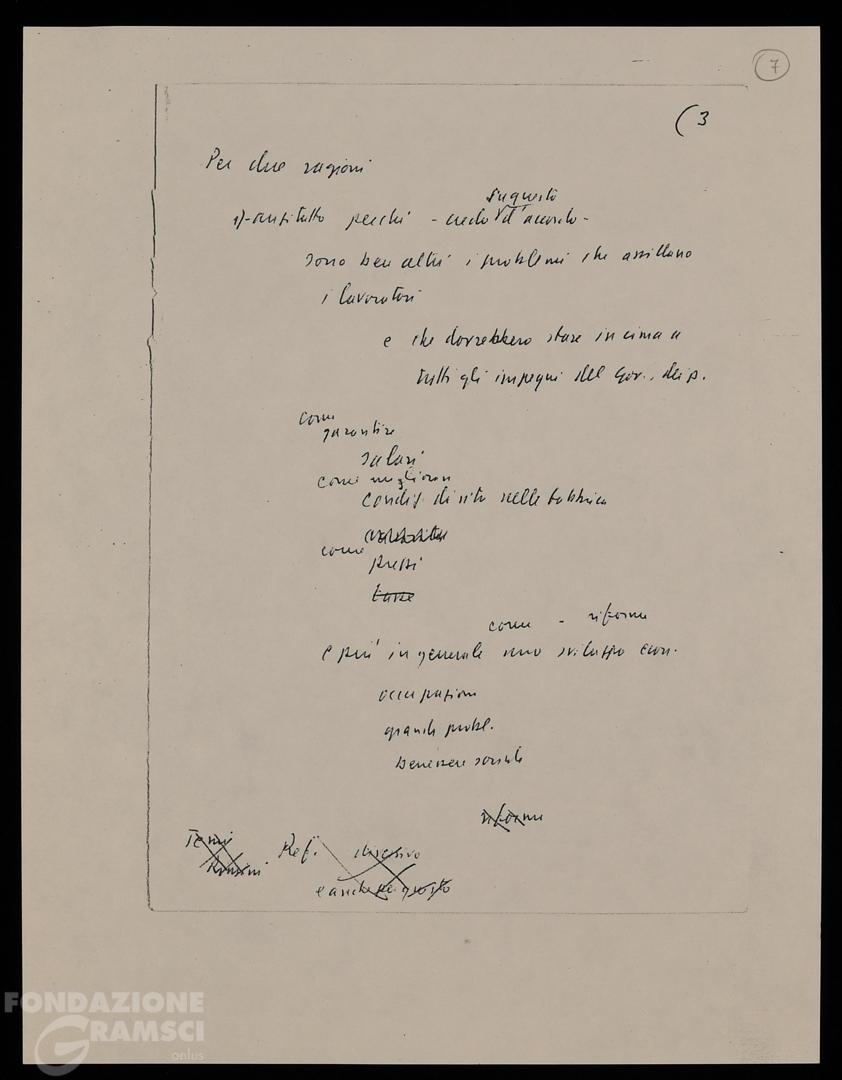 7
(3
Per due ragioni
su questo
1)-anzitutto perché - credo d'accordo -
sono ben altri i problemi che assillano
i lavoratori
e che dovrebbero stare in cima a
tutti gli impegni del Gov., dei p.
come
garantire
salari
come migliorare
condiz. di vita nelle fabbriche
come
prezzi
tasse
come - riforme
e più in generale uno sviluppo econ.
occupazione
grandi probl.
benessere sociale
riforme
Temi
Ref. diversivo
e anche per questo
FONDAZIONE
GRAMSCI
onlus